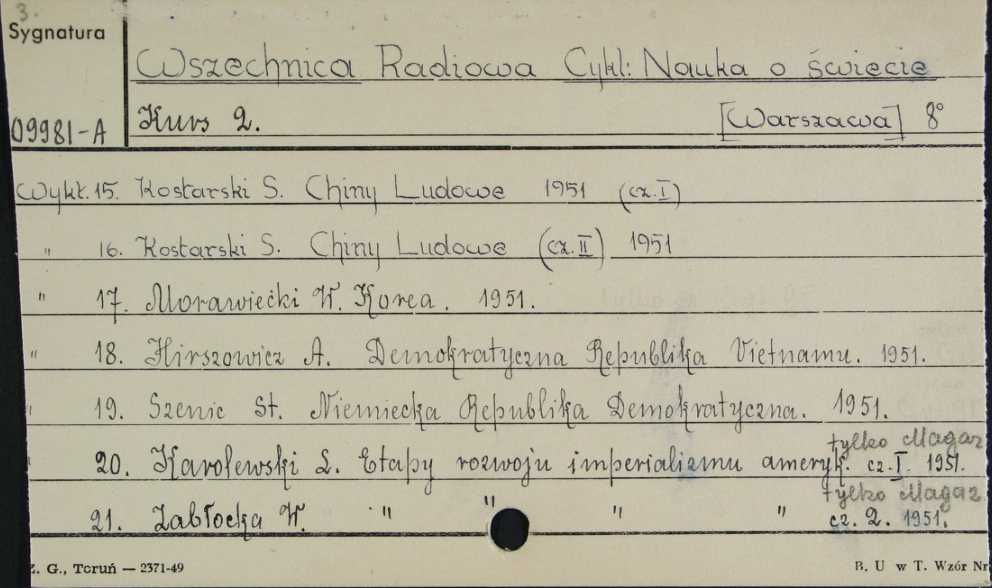 3.
Sygnatura
Wszechnica Radiowa Cykl: Nauka o świecie
09981-A Kurs 2. [Warszawa] 8°
Wykł. 15. Kostarski S. Chiny Ludowe 1951 (cz. I)
" 16. Kostarski S. Chiny Ludowe (cz. II) 1951
" 17. Morawiecki W. Korea. 1951.
" 18. Hirszowicz A. Demokratyczna Republika Vietnamu. 1951.
" 19. Szenic St. Niemiecka Republika Demokratyczna. 1951.
tylko Magaz
" 20. Karolewski L. Etapy rozwoju imperializmu ameryk. cz. I. 1951.
tylko Magaz
21. Zabłocka W. " " " " cz. 2. 1951.
Z. G., Toruń — 2371-49 B. U w T. Wzór Nr